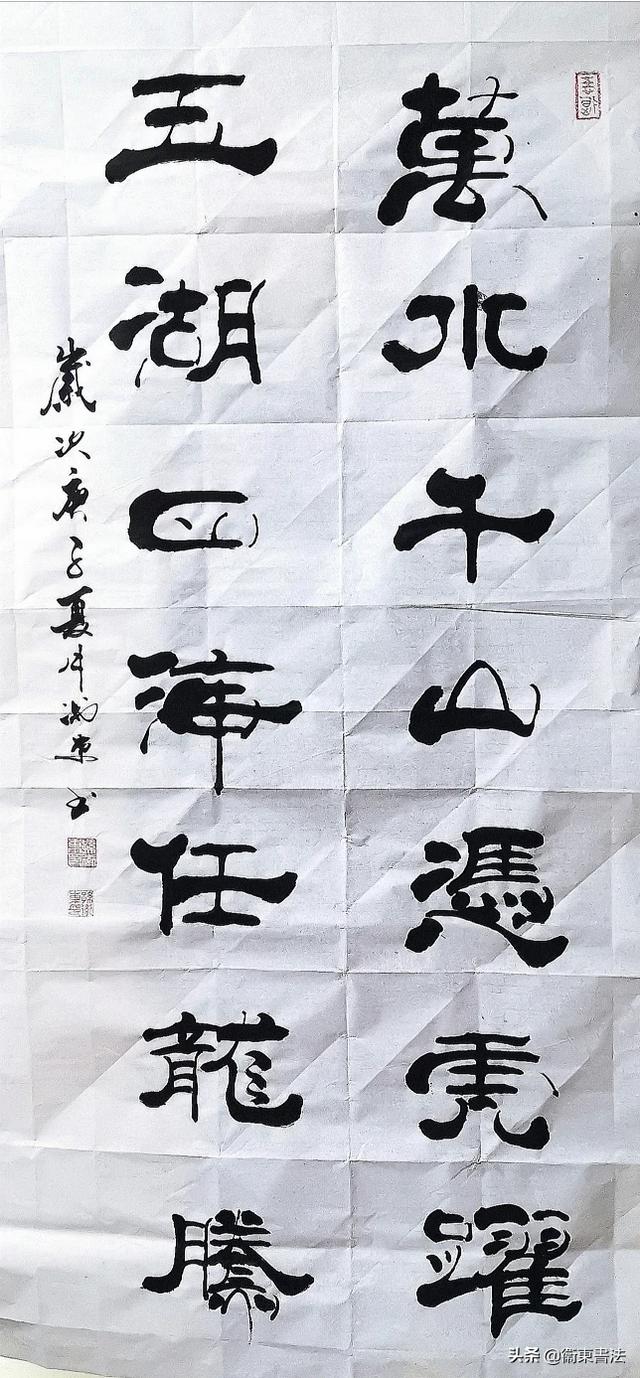 萬水千山憑虎躍
五湖四海任龍騰
歲次庚子夏月衛東書
头条 @衞東書法